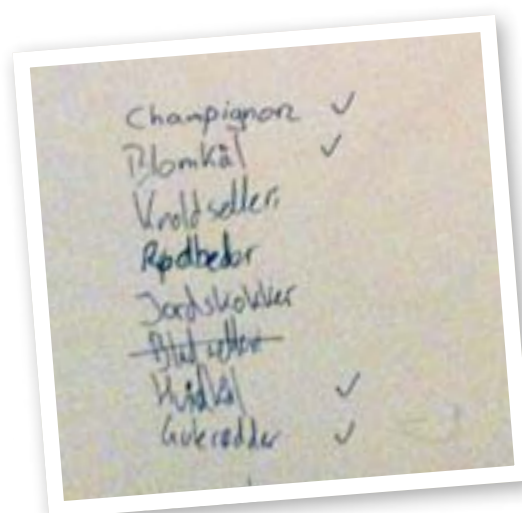 Champignon ✓
Blomkål ✓
Knoldselleri
Rødbeder
Jordskokker
Hvidkål ✓
Gulerødder ✓